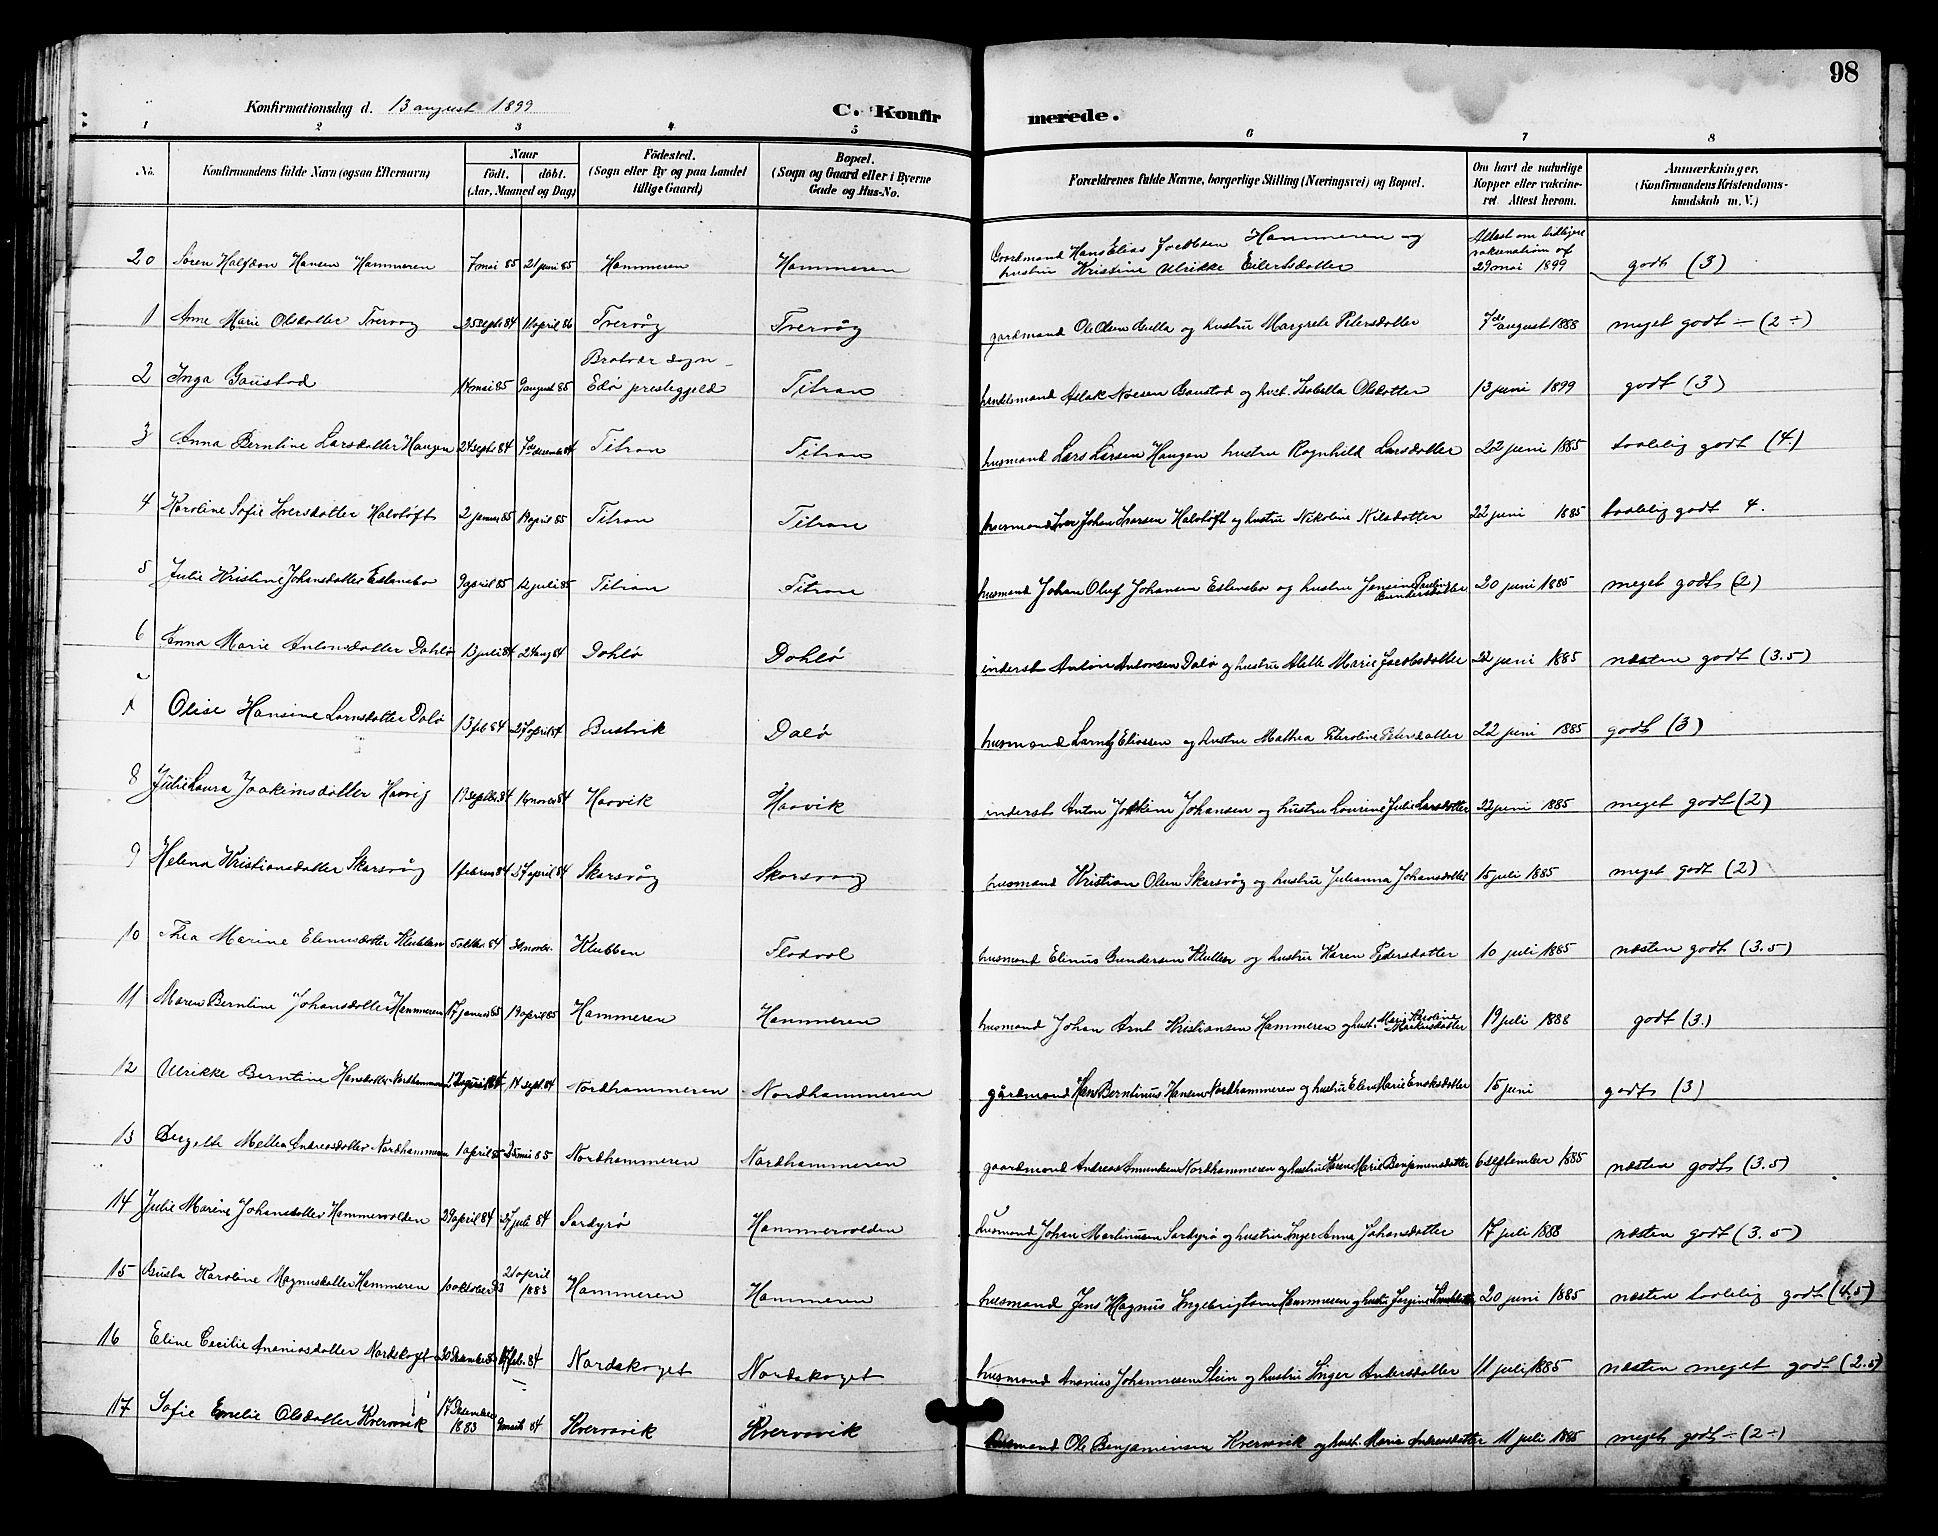 98
Konfirmationsdag d. 13 august 1899
C. Konfirmerede.
1 2 3 4 5 6 7 8
No. Konfirmandens fulde Navn (ogsaa Efternavn) Naar født. døbt. (Aar, Maaned og Dag) Fødested. (Sogn eller By og paa Landet tillige Gaard) Bopæl. (Sogn og Gaard eller i Byerne Gade og Hus-No. Forældrenes fulde Navne, borgerlige Stilling (Næringsvei) og Bopæl. Om havt de naturlige Kopper eller vaccineret. Attest herom. Anmærkninger. (Konfirmandens Kristendomskundskab m. V.)
20 Søren Halfdan Hansen Hammeren 7 mai 85 21 juni 85 Hammeren Hammeren Gaardmand Hans Elias Jacobsen Hammeren og hustru Kristine Ulrikke Eilertsdatter Attest om tidligere vakcination af 29 mai 1899 godt (3)
1 Anne Marie Olsdatter Tvervaag 25 septr 84 11 april 86 Tvervåg Tvervåg gardmand Ole Olsen og hustru Margrete Petersdatter 7de august 1888 meget godt ÷ (2 ÷)
2 Inga Gaustad 14 mai 85 9 august 85 Bratvær sogn Edø prestegjeld Titran Aslak Gaustad og hust. Isabella Olsdatter 13 juni 1899 godt (3)
3 Anna Berntine Larsdatter Haugen 24 septr 84 7de decembr 84 Titran Titran husmand Lars Larsen Haugen hustru Ragnhild Larsdatter 22 juni 1885 taalelig godt (4.)
4 Karoline Sofie Iversdatter Halvtøft 2 januar 85 19 april 85 Titran Titran husmand Iver Johan Iversen Halvtøft og hustru Nikoline Nilsdatter 22 juni 1885 taalelig godt 4.
5 Julie Kristine Johansdatter Eslensbo 9 april 85 12 juli 85 Titran Titran husmand Johan Oluf Johansen Eslensbo og hustru Jensine Pauline Gundersdatter 20 juni 1885 meget godt (2)
6 Anna Marie Antonsdatter Dahlø 13 juli 84 24 aug 84 Dahlø Dahlø inderst Anton Antonsen Dalø og hustru Alette Marie Jacobsdatter 22 juni 1885 næsten godt (3.5)
7 Olise Hansine Larnsdatter Dalø 13 feb 84 27 april 84 Bustvik Dalø husmand Eliassen og hustru Mathea Peteroline Petersdatter 22 juni 1885 godt (3)
8 Julie Laura Joakimsdatter Haavig 17 septbr. 84 16 novbr 84 Haavik Haavik inderst Anton Joakim Johansen og hustru Laurine Julie Larsdatter 22 juni 1885 meget godt (2)
9 Helena Kristiansdatter Skarsvåg 1 februar 84 27 april 84 Skarsvåg Skarsvaag husmand Kristian Olsen Skarsvåg og hustru Julianna Johansdatter 15 juli 1885 meget godt (2)
10 Thea Marine Elinusdatter Klubben 5 oktbr. 84 30 novbr. Klubben Flodval husmand Elinus Gundersen Klubben og hustru Karen Pedersdatter 10 juli 1885 næsten godt (3.5)
11 Maren Berntine Johansdatter Hammeren 17 januar 85 19 april 85 Hammeren Hammeren husmand Johan Arnt Kristiansen Hammeren og hust. Marie Karoline Markusdatter 19 juli 1888 godt (3.)
12 Ulrikke Berntine Hansdatter Nordhammeren 14 sept. 84 Nordhammeren Nordhammeren gårdmand Hans Berntinus Hansen Nordhammeren og hustru Elen Marie 15 juni godt (3)
13 Bergette Mettea Andreasdatter Nordhammeren 1 april 85 25 mai 85 Nordhammeren Nordhammeren gaardmand Andreas Amundsen Nordhammeren og hustru Karen Marie Benjamensdatter 6 september 1885 næsten godt (3.5)
14 Julie Marine Johansdatter Hammervolden 29 april 84 27 juli 84 Sardyrø Hammervolden husmand Johan Martinusen Sardyrø og hustru Inger Anna Johansdatter 17 juli 1888 næsten godt (3.5)
15 Gusta Karoline Magnusdatter Hammeren 10 oktober 21 april 1883 Hammeren Hammeren husmand Jens Magnus Ingebrigtsen Hammeren og hustru 20 juni 1885 næsten taalelig godt (4.5)
16 Eline Cecilie Ananiasdatter Nordskoget 20 December 17 feb. 84 Nordskoget Nordskoget husmand Ananias Johannesen Stein og hustru Inger Andersdatter 11 juli 1885 næsten meget godt (2.5)
17 Sofie Emelie Olsdatter Kvervavik 17 December 1883 9 marts 84 Kvervavik Kvervavik husmand Ole Benjaminsen Kvervavik og hust. Marie Andreasdatter 11 juli 1885 meget godt ÷ (2 ÷)